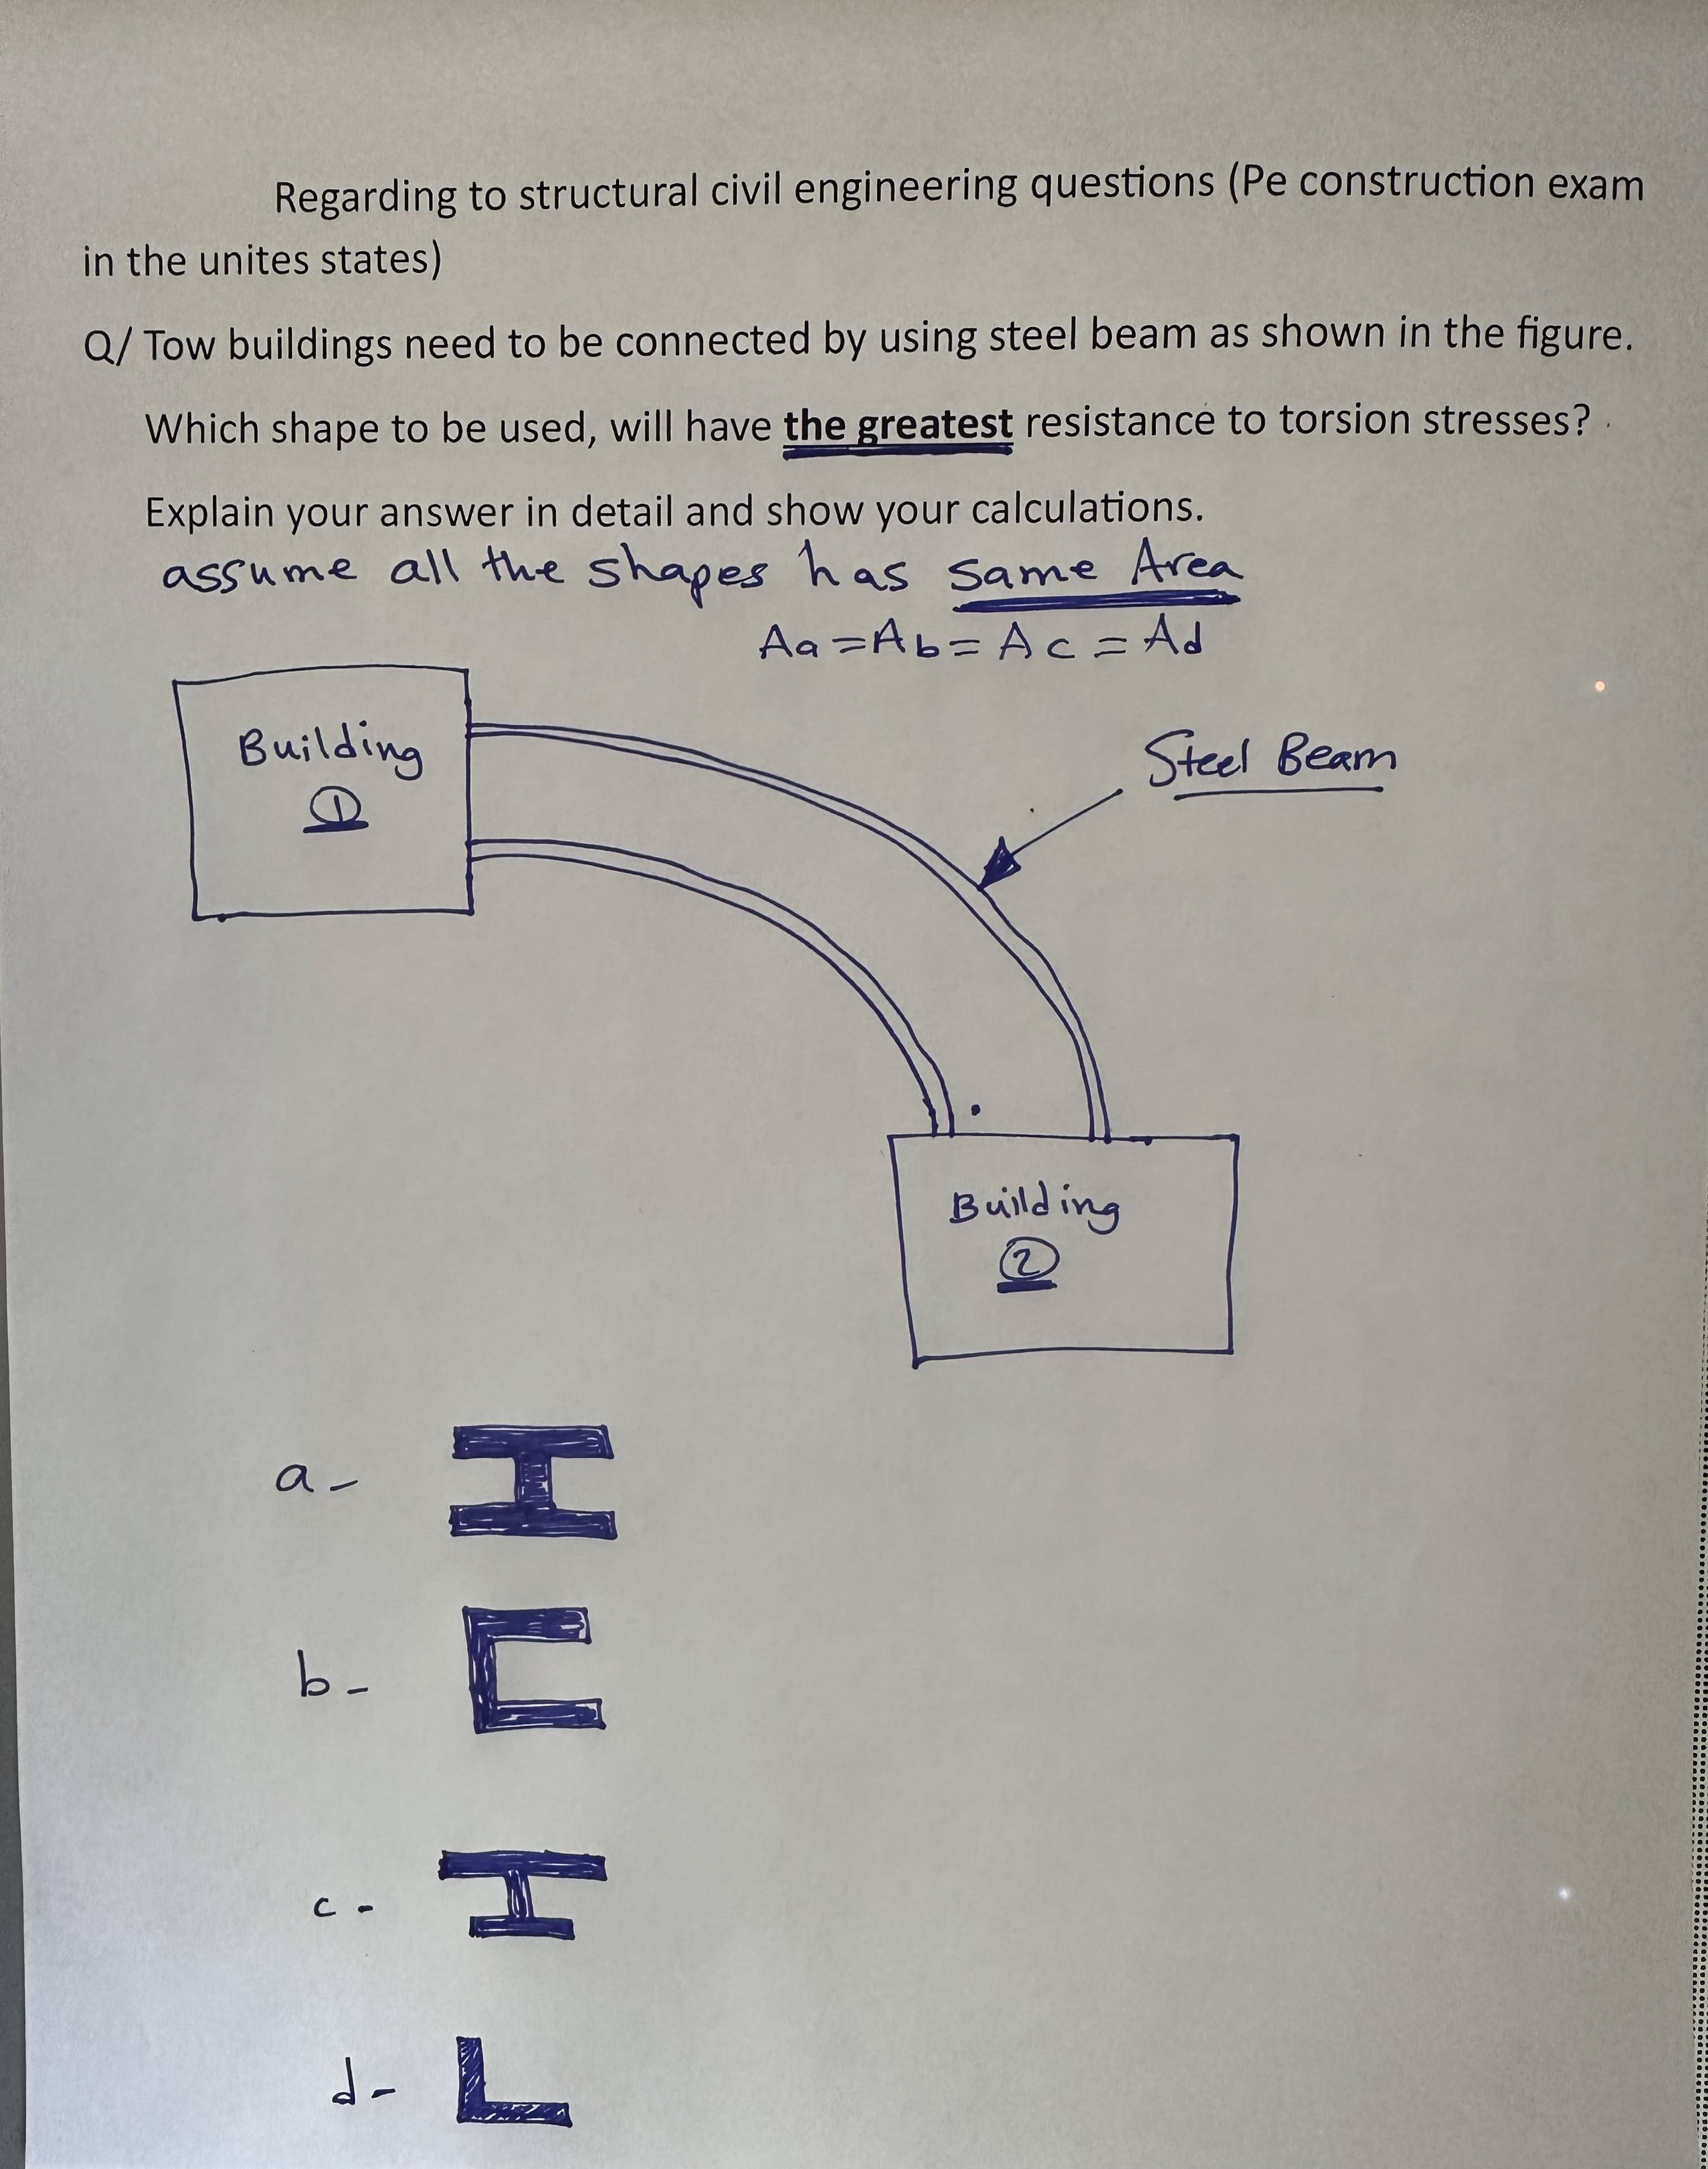 Regarding to structural civil engineering questions (Pe construction exam
in the unites states)
Q/ Tow buildings need to be connected by using steel beam as shown in the figure.
Which shape to be used, will have the greatest resistance to torsion stresses?
Explain your answer in detail and show your calculations.
assume all the shapes has same Area
Aa = Ab = Ac = Ad
Building
1
Steel Beam
Building
2
a -
b -
c -
d -